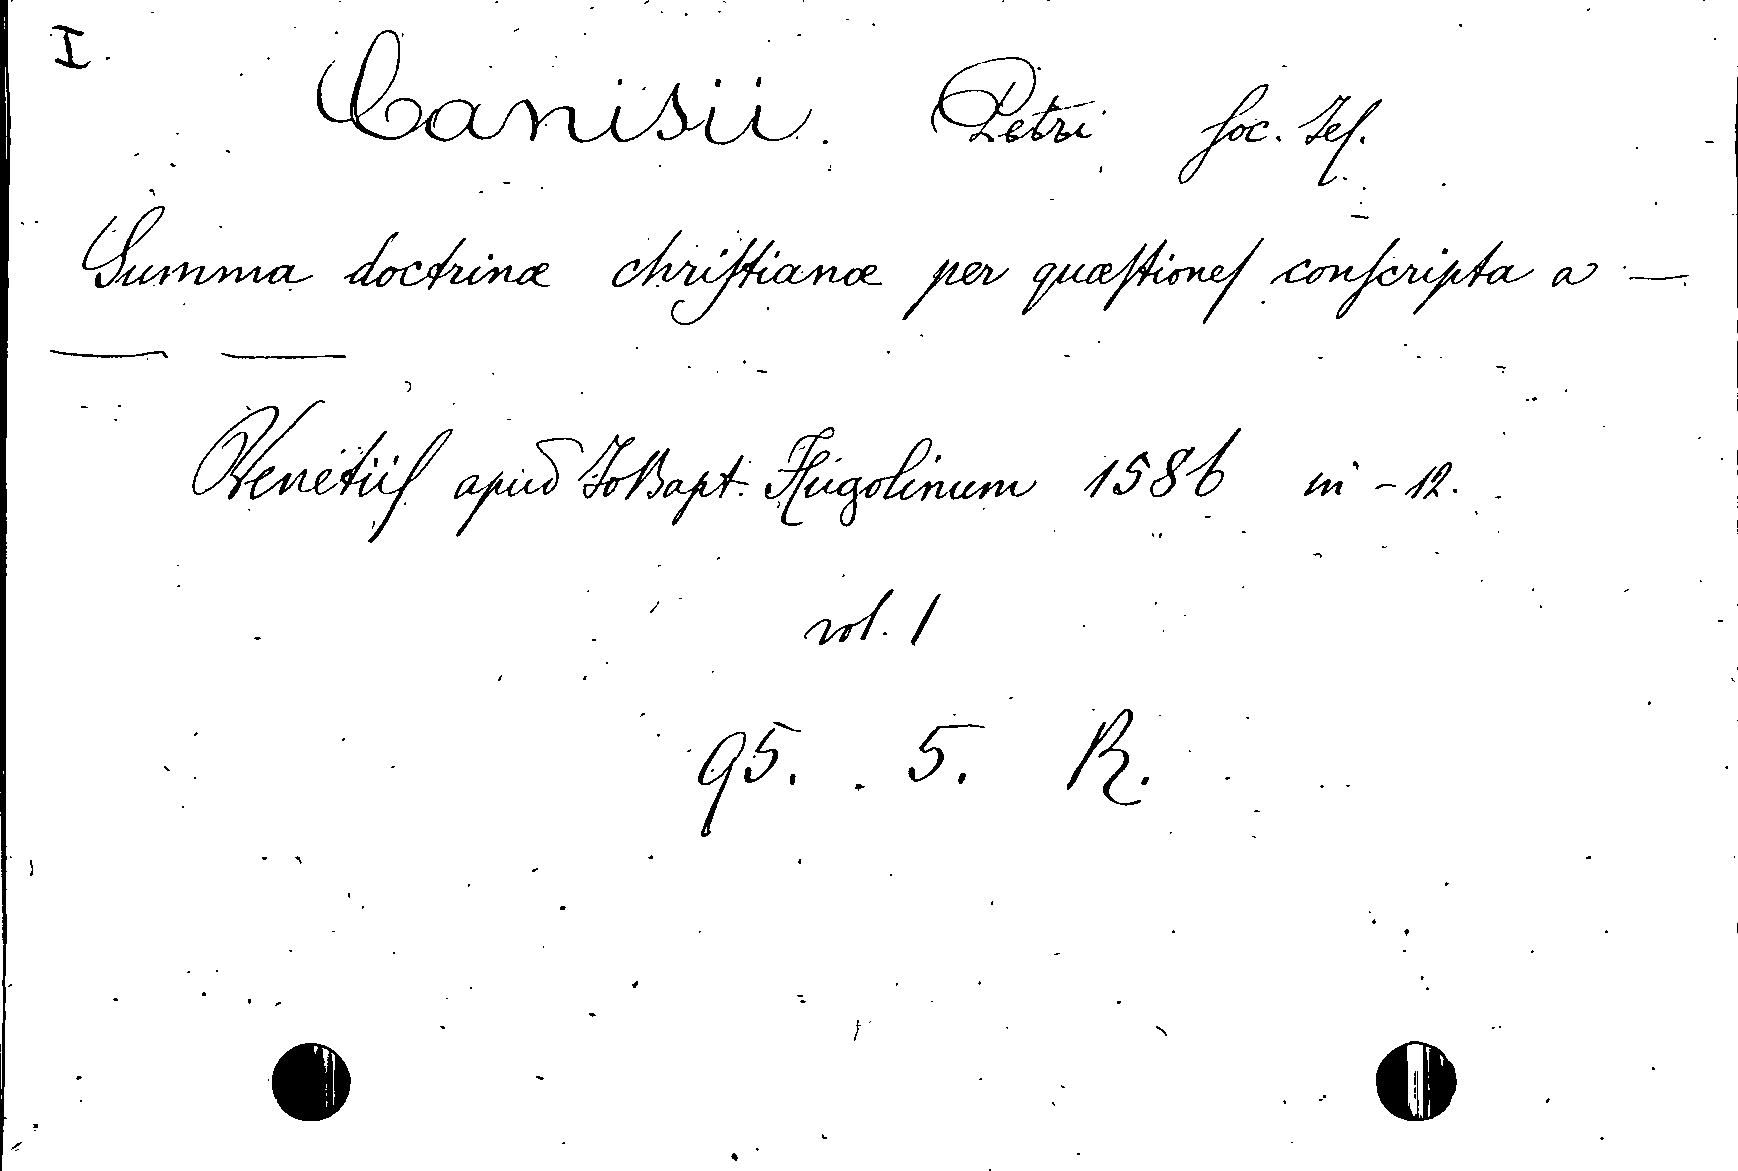 I.
Canisii. Petri Soc. Jes.
Summa doctrinæ christianæ per quæstiones conscripta a —
— —
Venetiis apud Jo Bapt. Hugolinum 1586 in - 12.
vol. 1
95. . 5. R.